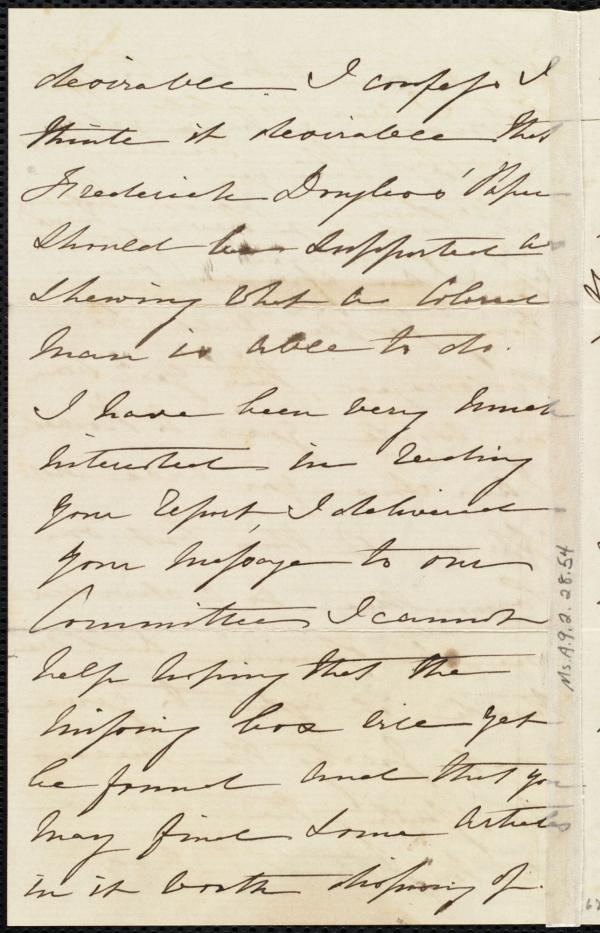 desirable. I confess I
think it desirable that
Frederick Douglass' Paper
should be supported as
shewing what a Colored
man is able to do.
I have been very much
interested in reading
your report, I delivered
your message to our
Committee, I cannot
help hoping that the
missing box will yet
be found and that you
may find some articles
in it worth disposing of.
Ms.A.9.2.28.54